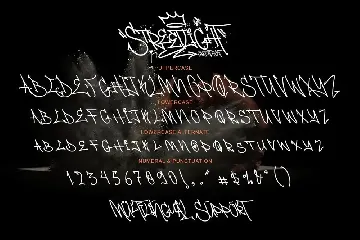 STREETLIGHT
UPPERCASE
ABCDEFGHIJKLMNOPQRSTUVWXYZ
LOWERCASE
ABCDEFGHIJKLMNOPQRSTUVWXYZ
LOWERCASE ALTERNATE
ABCDEFGHIJKLMNOPQRSTUVWXYZ
NUMERAL & PUNCTUATION
1234567890!,.:" #$%&*()
MULTILINGUAL SUPPORT